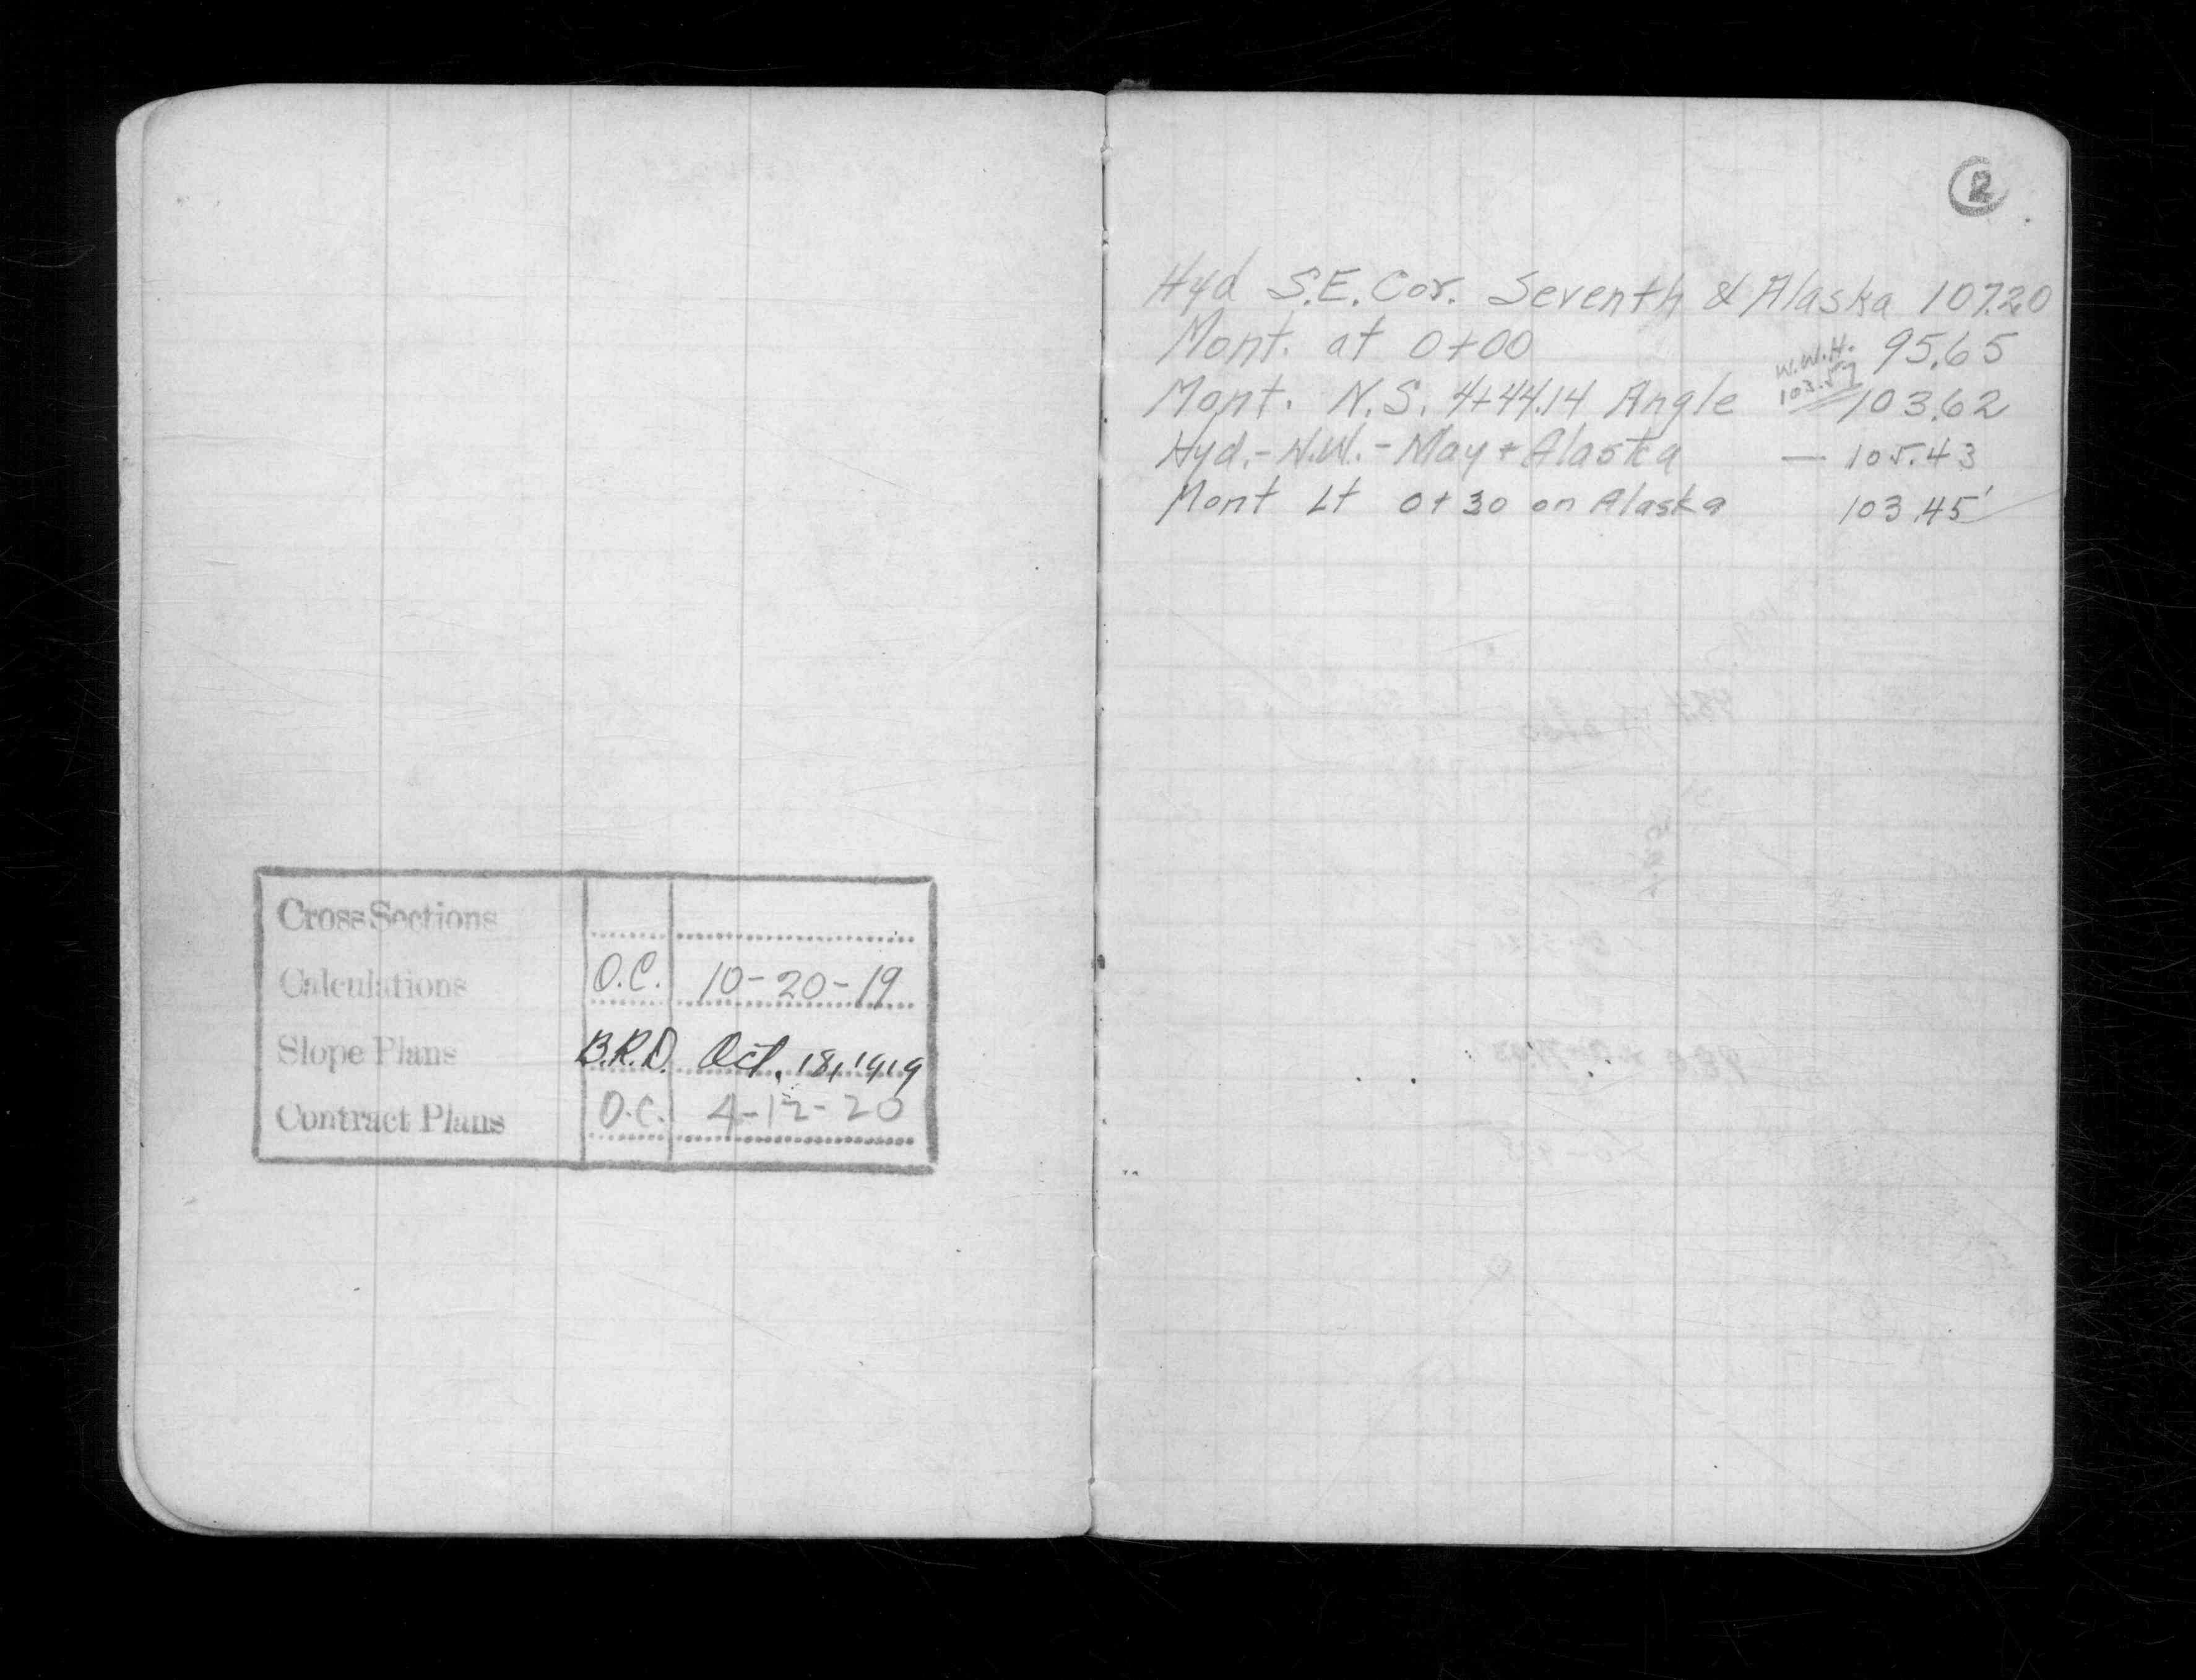 Cross Sections
Calculations O.C. 10-20-19
Slope Plans B.R.D. Oct. 18, 1919
Contract Plans O.C. 4-12-20
2
Hyd S.E. Cor. Seventh & Alaska 107.20
Mont. at 0+00 95.65
W.W.H.
103.57
Mont. N.S. 4+44.14 Angle 103.62
Hyd.-N.W.-May + Alaska — 105.43
Mont Lt 0+30 on Alaska 103.45'